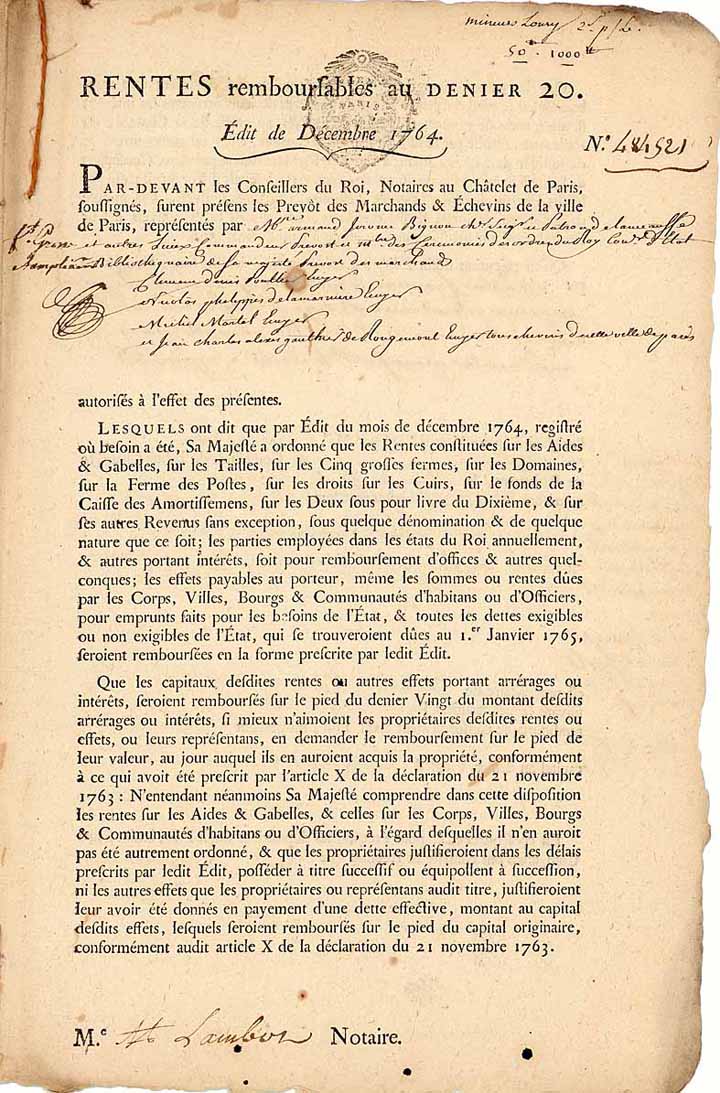 mineurs Loury
50 . 1000
RENTES rembourſables au DENIER 20.
PARIS
Édit de Décembre 1764.
N.º 484521
PAR-DEVANT les Conſeillers du Roi, Notaires au Châtelet de Paris,
ſouſſignés, furent préſens les Prevôt des Marchands & Échevins de la ville
de Paris, repréſentés par M.re armand Jerome Bignon ch.er Seig.r et Patron de
et autres Lieux Commandeur Prevost et M.tre des Ceremonies des ordres du Roy Con.er d'Etat
Bibliothequaire de sa majesté Prevost des marchands
Clement denis Poultier Ecuyer
Nicolas philippes delamarniere Ecuyer
Michel Martel Ecuyer
et Jean charles alexis gaultier de Rougemont Ecuyer tous echevins de cette ville de paris
autoriſés à l'effet des préſentes.
LESQUELS ont dit que par Édit du mois de décembre 1764, regiſtré
où beſoin a été, Sa Majeſté a ordonné que les Rentes conſtituées ſur les Aides
& Gabelles, ſur les Tailles, ſur les Cinq groſſes fermes, ſur les Domaines,
ſur la Ferme des Poſtes, ſur les droits ſur les Cuirs, ſur le fonds de la
Caiſſe des Amortiſſemens, ſur les Deux ſous pour livre du Dixième, & ſur
ſes autres Revenus ſans exception, ſous quelque dénomination & de quelque
nature que ce ſoit; les parties employées dans les états du Roi annuellement,
& autres portant intérêts, ſoit pour rembourſement d'offices & autres quel-
conques; les effets payables au porteur, même les ſommes ou rentes dûes
par les Corps, Villes, Bourgs & Communautés d'habitans ou d'Officiers,
pour emprunts faits pour les beſoins de l'État, & toutes les dettes exigibles
ou non exigibles de l'État, qui ſe trouveroient dûes au 1.er Janvier 1765,
ſeroient rembourſées en la forme preſcrite par ledit Édit.
Que les capitaux deſdites rentes ou autres effets portant arrérages ou
intérêts, ſeroient rembourſés ſur le pied du denier Vingt du montant deſdits
arrérages ou intérêts, ſi mieux n'aimoient les propriétaires deſdites rentes ou
effets, ou leurs repréſentans, en demander le rembourſement ſur le pied de
leur valeur, au jour auquel ils en auroient acquis la propriété, conformément
à ce qui avoit été preſcrit par l'article X de la déclaration du 21 novembre
1763 : N'entendant néanmoins Sa Majeſté comprendre dans cette diſpoſition
les rentes ſur les Aides & Gabelles, & celles ſur les Corps, Villes, Bourgs
& Communautés d'habitans ou d'Officiers, à l'égard deſquelles il n'en auroit
pas été autrement ordonné, & que les propriétaires juſtifieroient dans les délais
preſcrits par ledit Édit, poſſéder à titre ſucceſſif ou équipollent à ſucceſſion,
ni les autres effets que les propriétaires ou repréſentans audit titre, juſtifieroient
leur avoir été donnés en payement d'une dette effective, montant au capital
deſdits effets, leſquels ſeroient rembourſés ſur le pied du capital originaire,
conformément audit article X de la déclaration du 21 novembre 1763.
M.e Lambot Notaire.